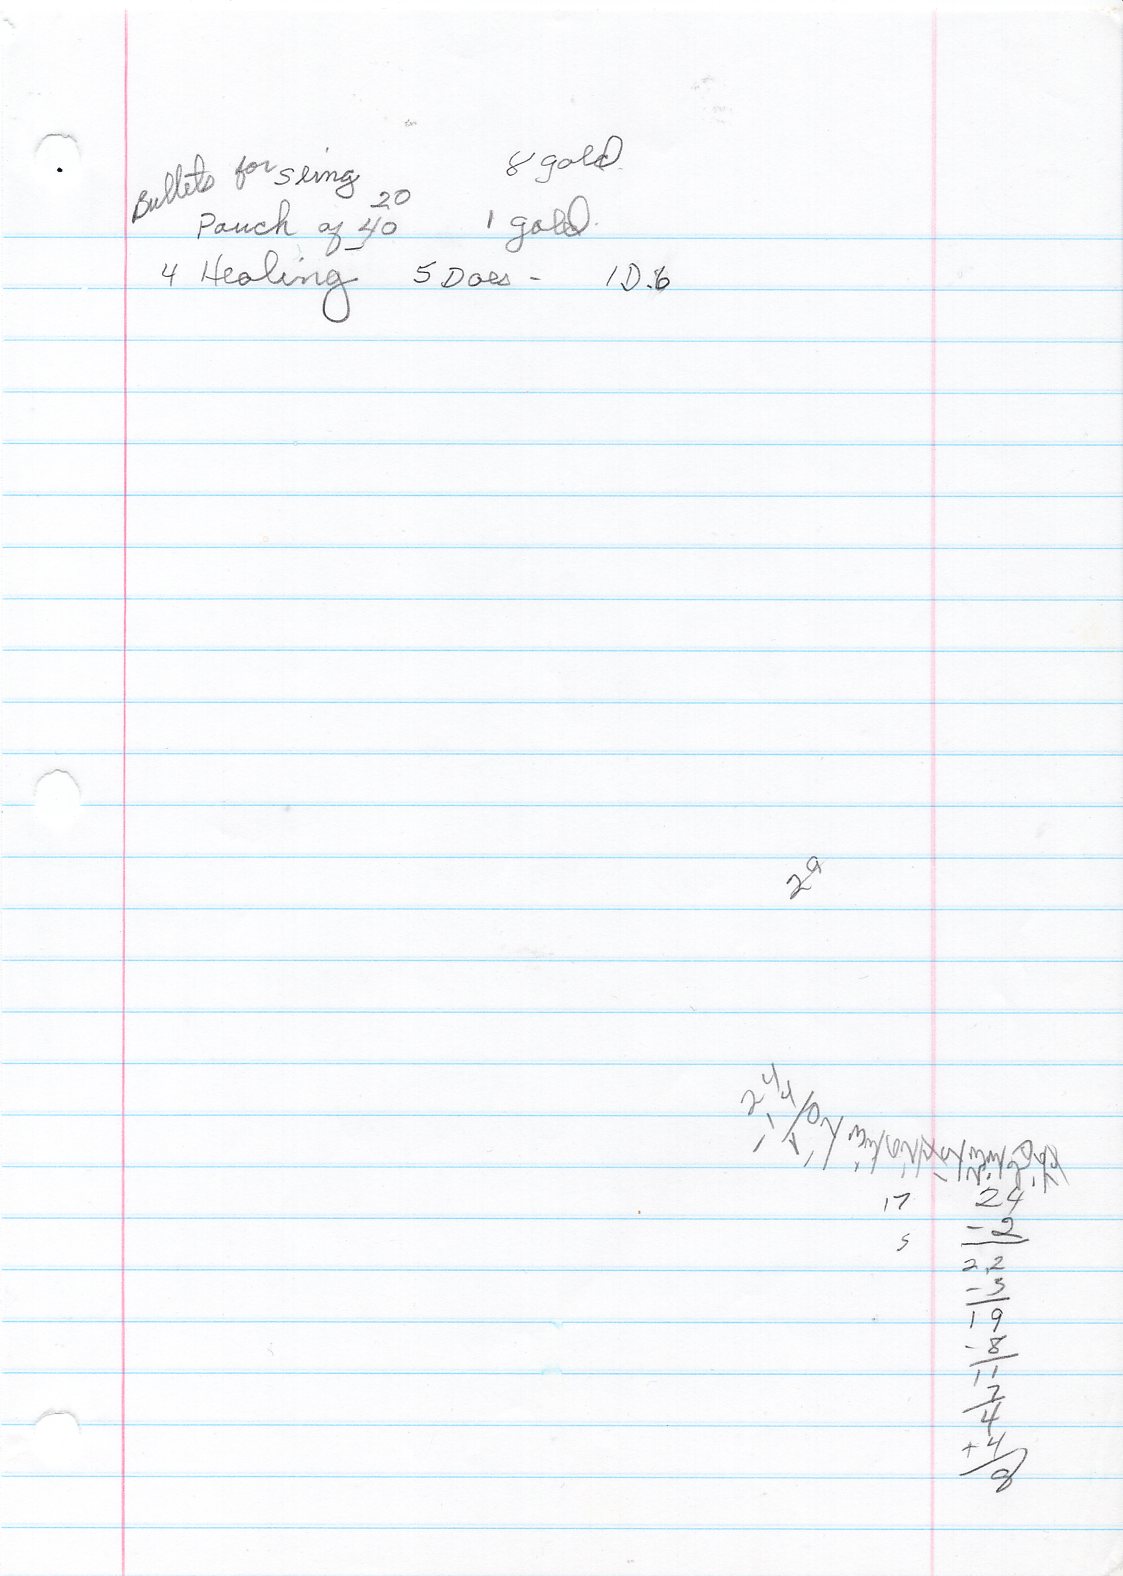 Bullets for sling 8 gold.
20
Pouch of 40 1 gold.
4 Healing 5 Does - 1D.6
29
17 24
5 -2
22
-3
19
-8
11
7
4
+4
8